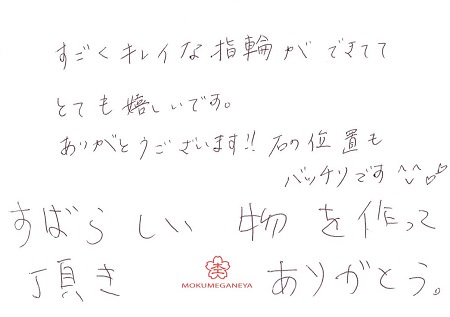 すごくキレイな指輪ができてて
とても嬉しいです。
ありがとうございます!! 石の位置も
バッチリです^^
すばらしい物を作って
頂き ありがとう。
MOKUMEGANEYA